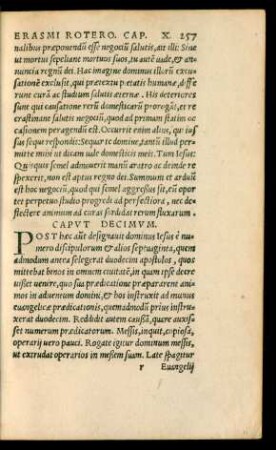 ERASMI ROTERO. CAP. X. 257
nalibus præponendũ esse negociũ salutis, ait illi: Sine
ut mortui sepeliant mortuos suos, tu autẽ uade, & an
nuncia regnũ dei. Hac imagine dominus illorũ excu
sationẽ exclusit, qui prætextu pietatis humanæ, diffe
runt curã ac studium salutis æternæ. His deteriores
sunt qui causatione rerũ domesticarũ prorogãt, et re
crastinant salutis negociũ, quod ad primum statim oc
casionem peragendũ est. Occurrit enim alius, qui ius
sus sequi respondit: Sequar te domine, tantũ illud per
mitte mihi ut dicam uale domesticis meis. Tum Iesus:
Quisquis semel admouerit manũ aratro ac deinde re
spexerit, non est aptus regno dei. Summum et arduũ
est hoc negociũ, quod qui semel aggressus sit, eũ oportet
perpetuo studio progredi ad perfectiora, nec de
flectere animum ad curas sordidas rerum fluxarum.
CAPVT DECIMVM.
POST hæc aũt designauit dominus Iesus è nu
mero discipulorum & alios septuaginta, quem
admodum antea selegerat duodecim apostolos, quos
mittebat binos in omnem ciuitatẽ, in quam ipse decre
uisset uenire, quo sua prædicatione præpararent ani
mos in aduentum domini, & hos instruxit ad munus
euangelicæ prædicationis, quemadmodum prius instru
xerat duodecim. Reddidit autem causã, quare auxis
set numerum prædicatorum. Messis, inquit, copiosa,
operarij uero pauci. Rogate igitur dominum messis,
ut extrudat operarios in messem suam. Late spargitur
r Euangelij